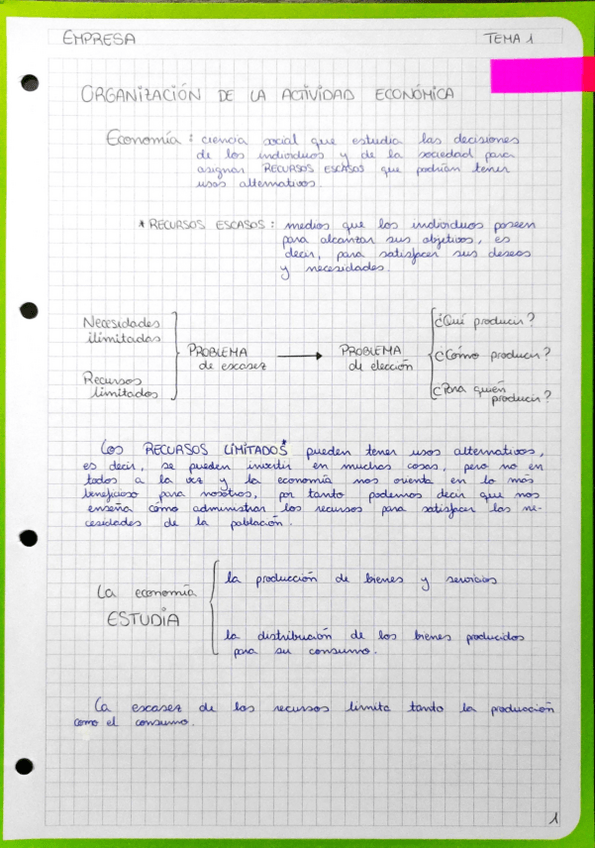 EMPRESA
TEMA 1
ORGANIZACIÓN DE LA ACTIVIDAD ECONÓMICA
Economía : ciencia social que estudia las decisiones
de los individuos y de la sociedad para
asignar RECURSOS ESCASOS que podrían tener
usos alternativos.
* RECURSOS ESCASOS : medios que los individuos poseen
para alcanzar sus objetivos, es
decir, para satisfacer sus deseos
y necesidades.
Necesidades
ilimitadas
Recursos
limitados
PROBLEMA
de escasez
PROBLEMA
de elección
¿Qué producir?
¿Cómo producir?
¿Para quién
producir?
Los RECURSOS LIMITADOS* pueden tener usos alternativos,
es decir, se pueden invertir en muchas cosas, pero no en
todos a la vez y la economía nos orienta en lo más
beneficioso para nosotros, por tanto podemos decir que nos
enseña cómo administrar los recursos para satisfacer las ne-
cesidades de la población.
La economía
ESTUDIA
la producción de bienes y servicios
la distribución de los bienes producidos
para su consumo.
La escasez de los recursos limita tanto la producción
como el consumo.
1